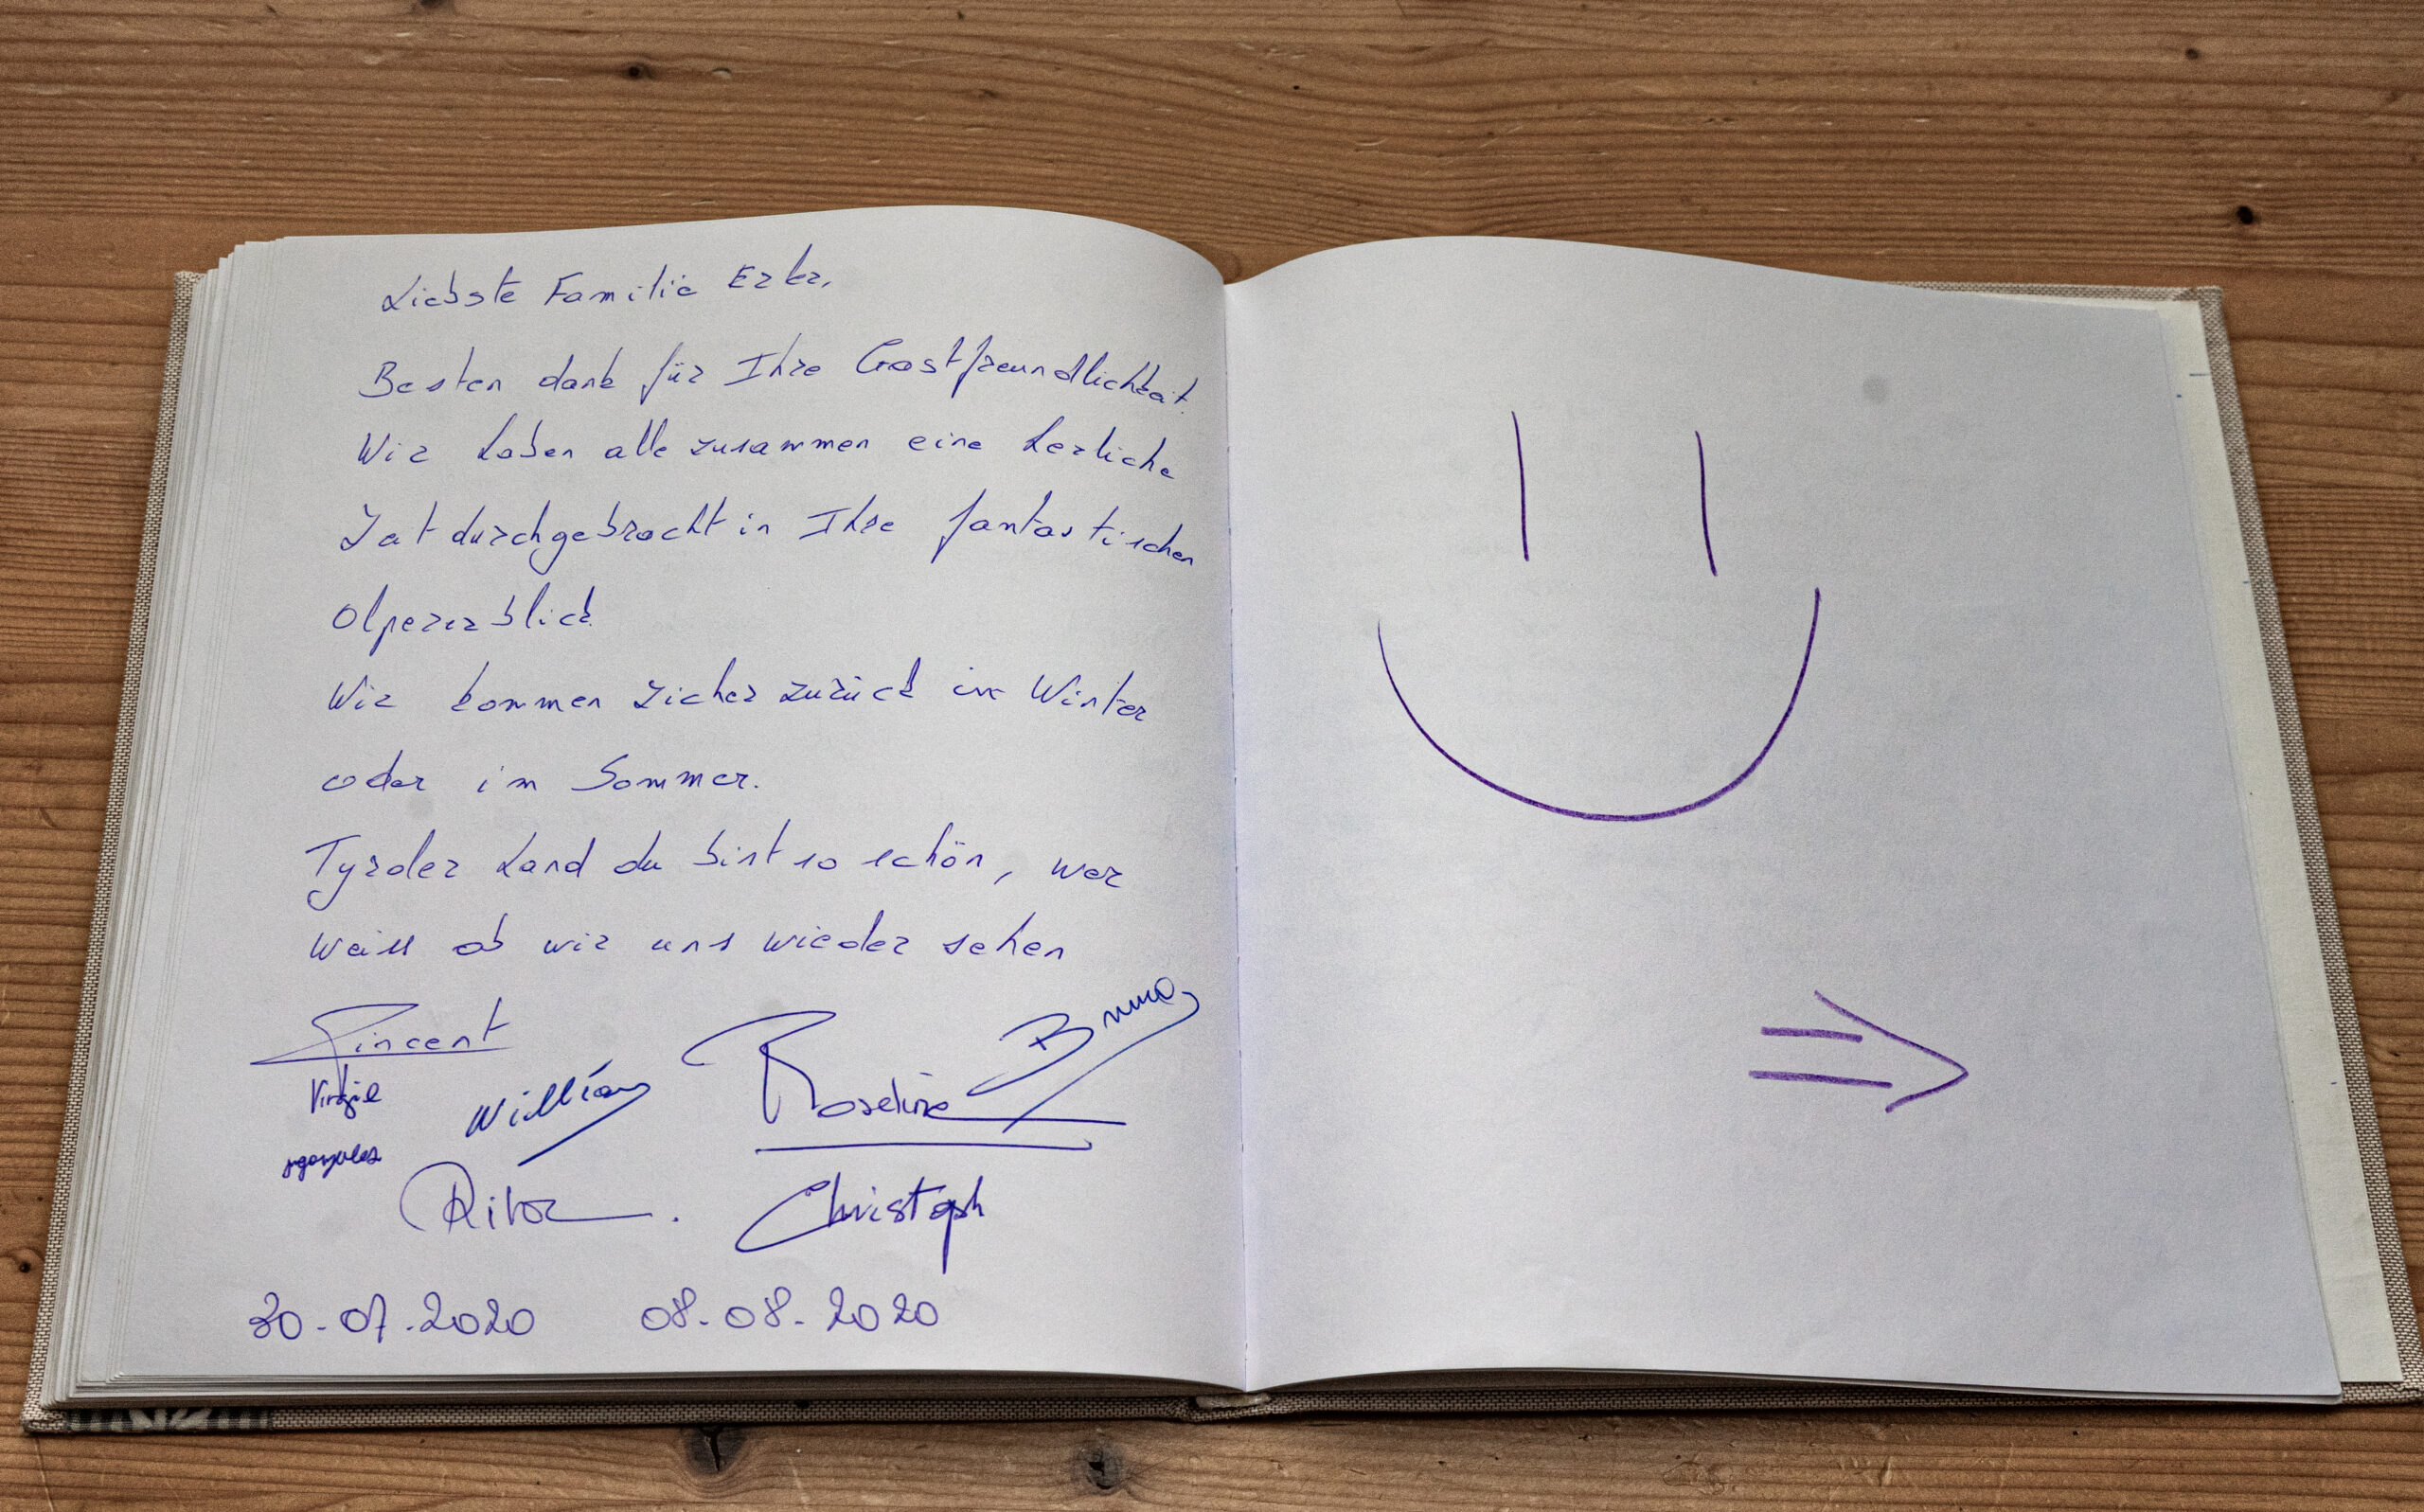 Liebste Familie Erler,
Besten dank für Ihre Gastfreundlichkeit.
Wir haben alle zusammen eine herliche
Zat durchgebracht in Ihre fantastischen
Olpererblick
Wir kommen zicher zurück im Winter
oder im Sommer.
Tyroler Land du bist so schön, wer
weiss ob wir uns wieder sehen
Vincent
Bruno
Virgil William Roseline
Christoph
30.07.2020 08.08.2020